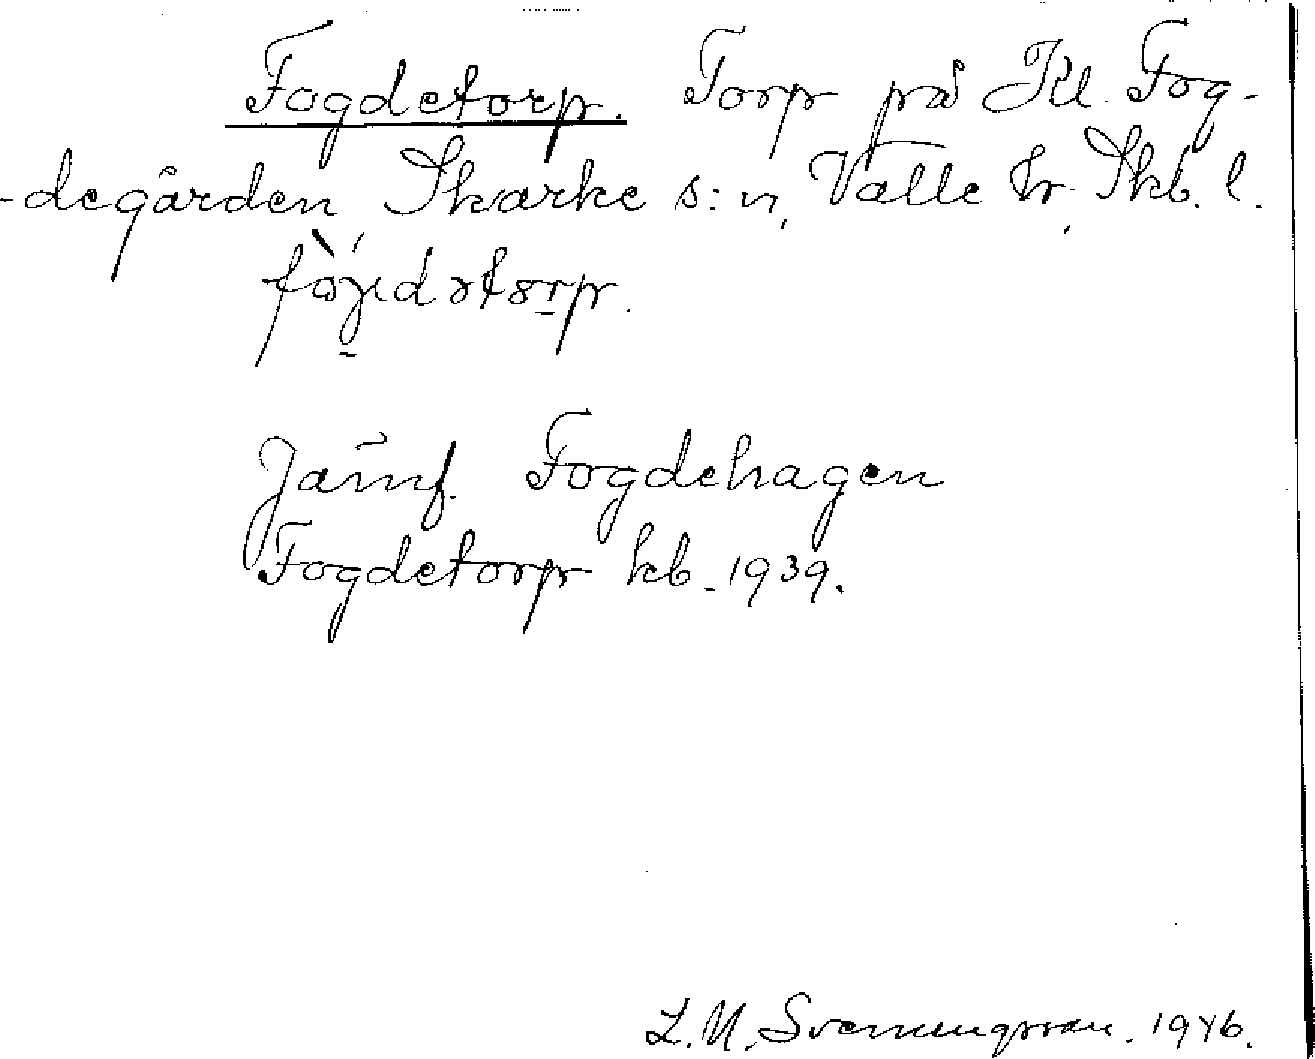 Fogdetorp. Torp på Kl. Fog-
-degården, Skarke s:n, Valle hr, Skb. l.
Jämf. Fogdehagen
Fogdetorp kb. 1939.
L. M. Svenungsson. 1946.